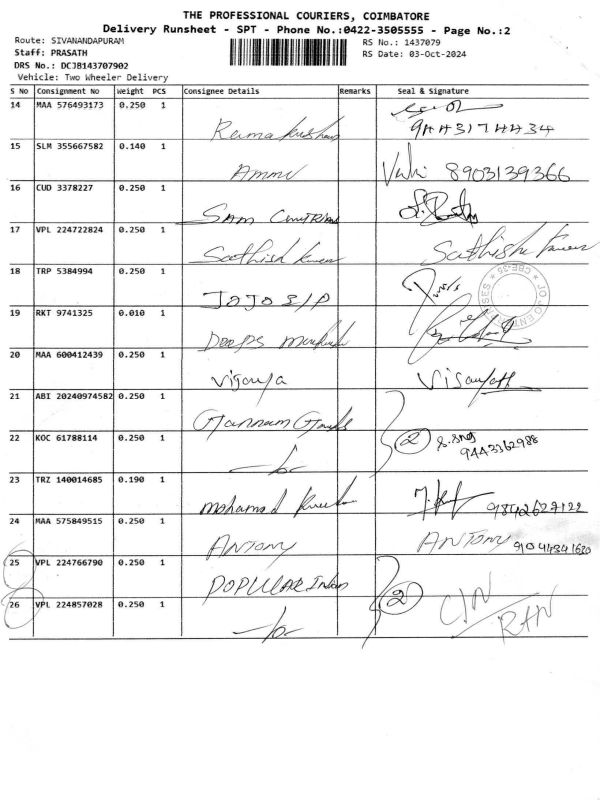 THE PROFESSIONAL COURIERS, COIMBATORE
Delivery Runsheet - SPT - Phone No.:0422-3505555 - Page No.:2
Route: SIVANANDAPURAM RS No.: 1437079
Staff: PRASATH RS Date: 03-Oct-2024
DRS No.: DCJB143707902
Vehicle: Two Wheeler Delivery
S No Consignment No Weight PCS Consignee Details Remarks Seal & Signature
14 MAA 576493173 0.250 1
15 SLM 355667582 0.140 1 Ammu 8903139366
16 CUD 3378227 0.250 1 SAM
17 VPL 224722824 0.250 1 Sathish Sathish
18 TRP 5384994 0.250 1 JOJO
19 RKT 9741325 0.010 1
20 MAA 600412439 0.250 1
21 ABI 20240974582 0.250 1
22 KOC 61788114 0.250 1 2 9443362988
23 TRZ 140014685 0.190 1 mohamad 9842627122
24 MAA 575849515 0.250 1 ANTONY ANTONY
25 VPL 224766790 0.250 1 POPULAR
26 VPL 224857028 0.250 1 2